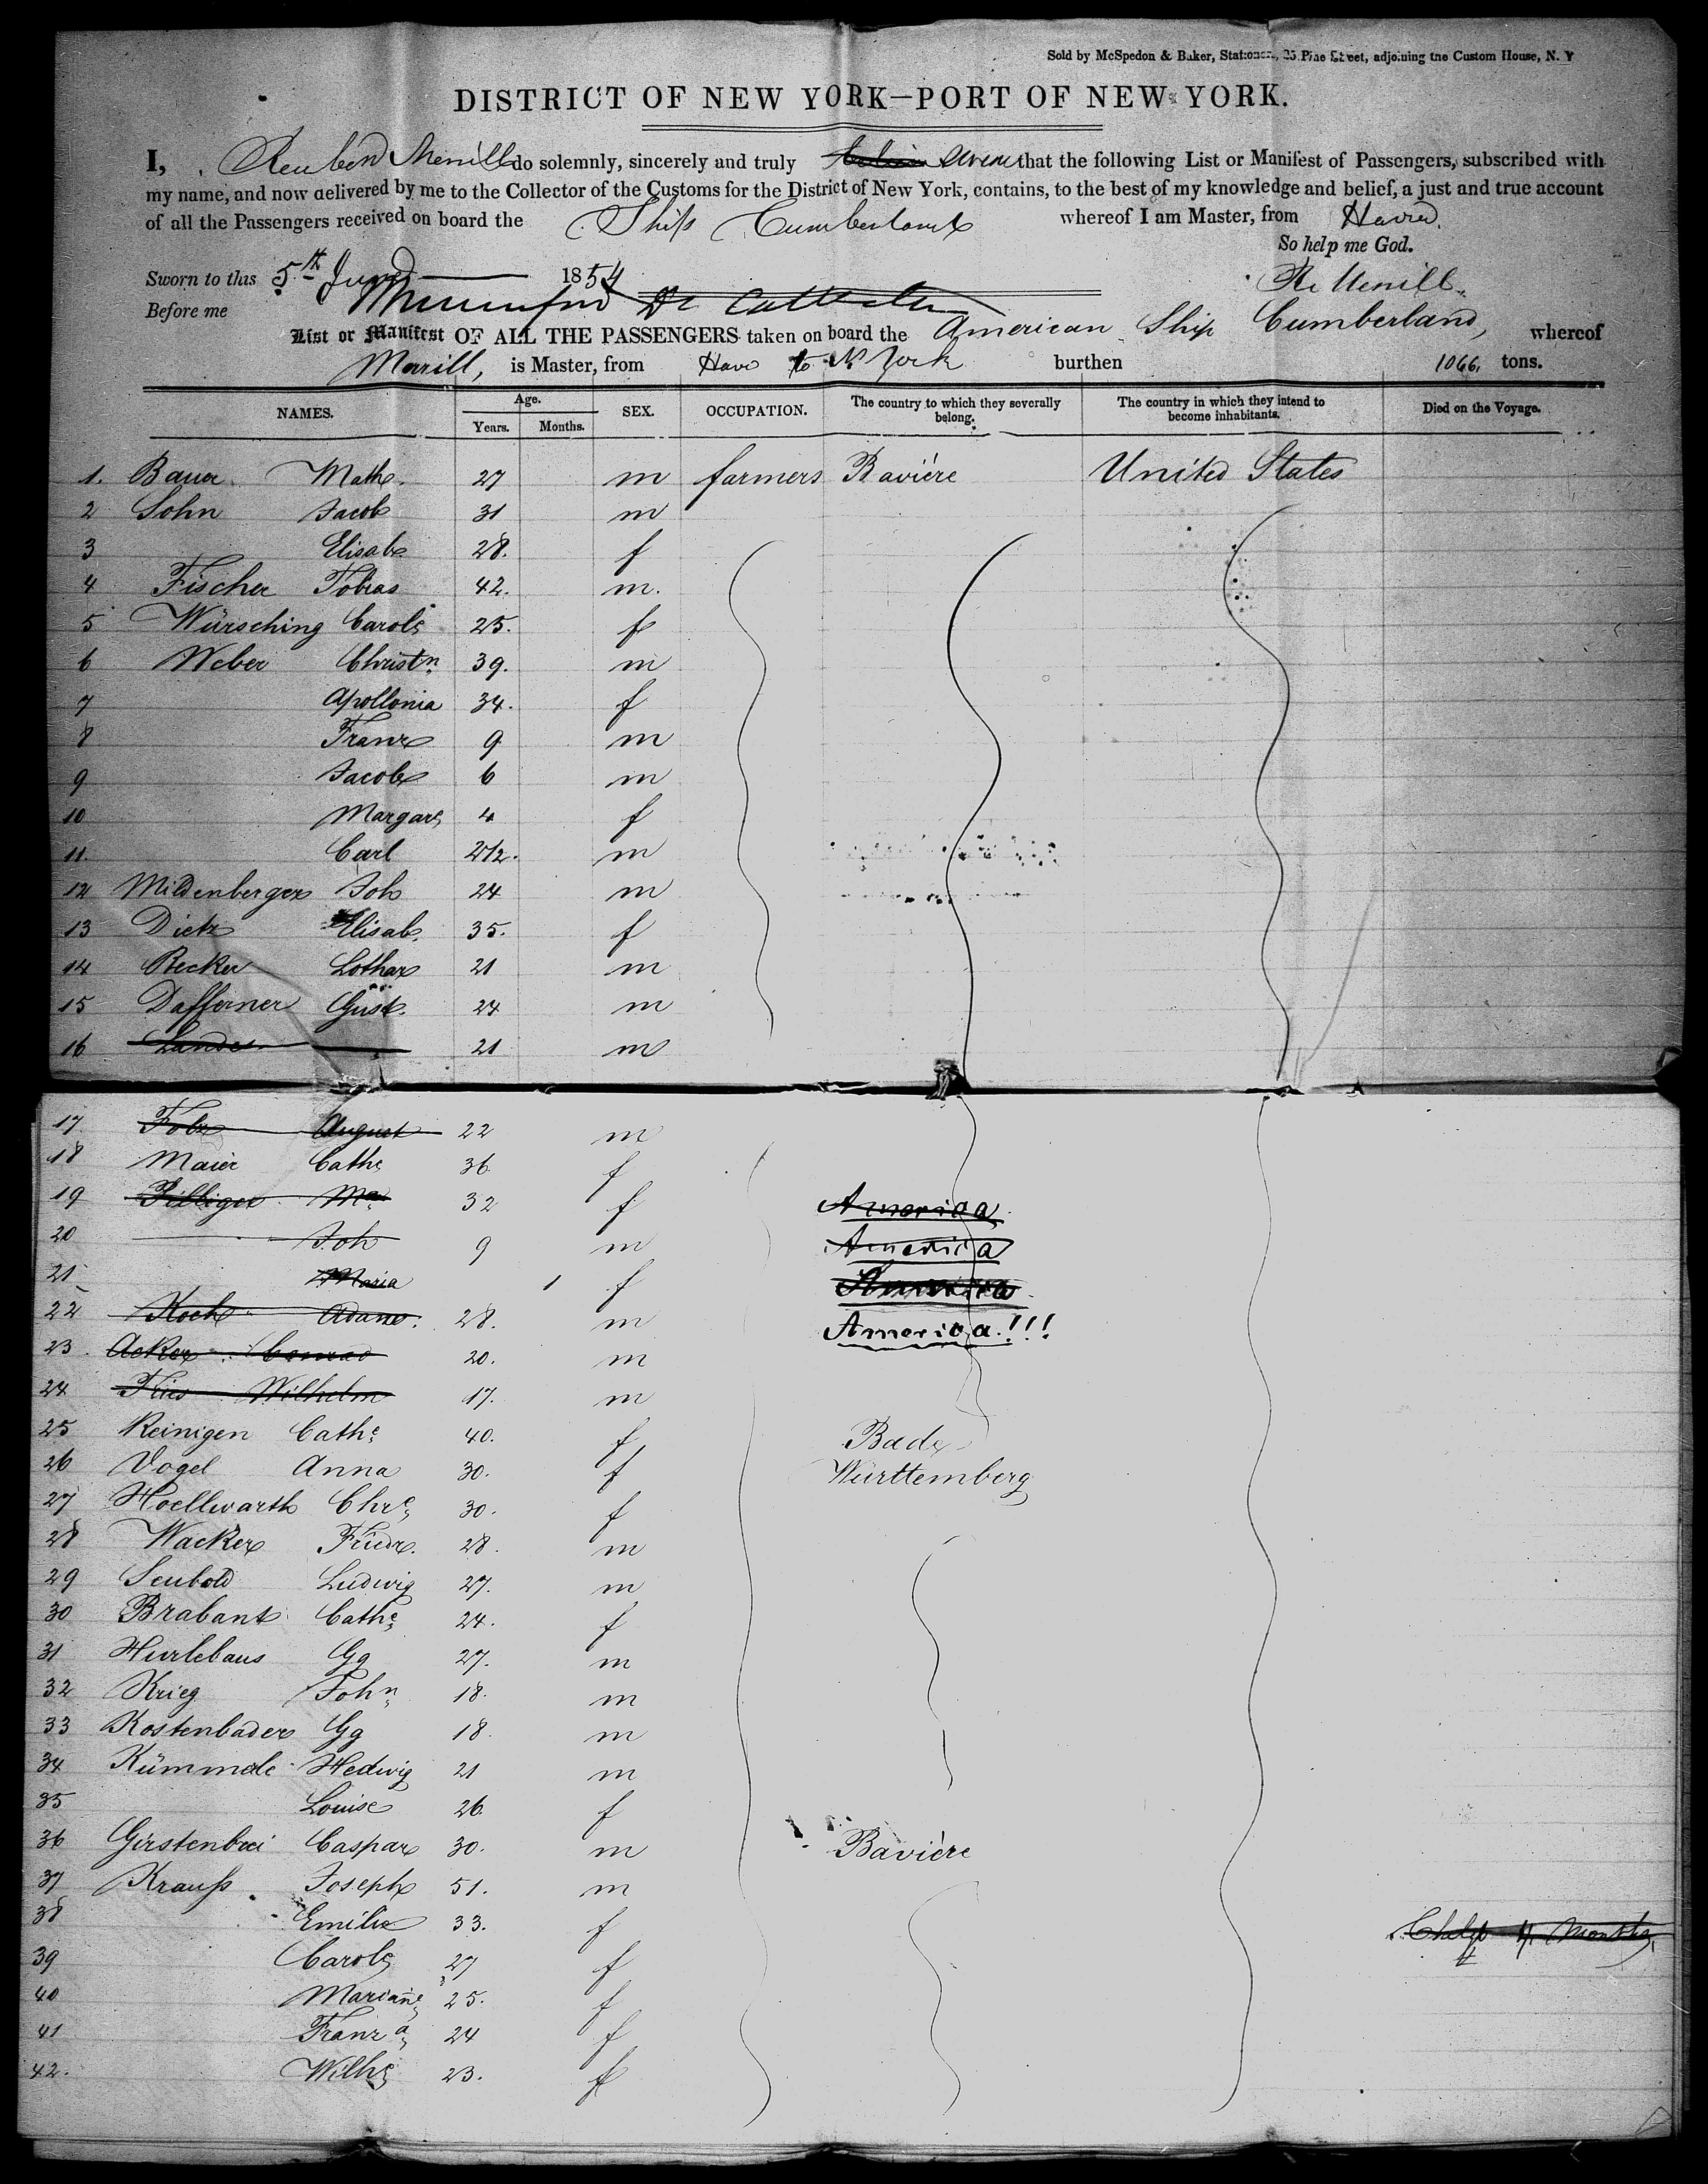 Sold by McSpedon & Baker, Stationers, 25 Pine Street, adjoining the Custom House, N. Y
DISTRICT OF NEW YORK—PORT OF NEW YORK.
I, Reuben Merrill do solemnly, sincerely and truly swear that the following List or Manifest of Passengers, subscribed with
my name, and now delivered by me to the Collector of the Customs for the District of New York, contains, to the best of my knowledge and belief, a just and true account
of all the Passengers received on board the Ship Cumberland whereof I am Master, from Havre.
So help me God.
Sworn to this 5th June 1854
R. Merrill
Before me
List or Manifest OF ALL THE PASSENGERS taken on board the American Ship Cumberland, whereof
Merrill, is Master, from Havre to N. York burthen 1066, tons.
NAMES. Age. Years. Months. SEX. OCCUPATION. The country to which they severally belong. The country in which they intend to become inhabitants. Died on the Voyage.
1. Bauer Math. 27 m farmers Bavière United States
2 Sohn Jacob 31 m
3 Elisab 28. f
4 Fischer Tobias 42. m.
5 Würsching Carole 25. f
6 Weber Christn 39. m
7 Apollonia 34. f
8 Franz 9 m
9 Jacob 6 m
10 Margare 4 f
11. Carl 2 1/2. m
12 Mildenberger Joh 24 m
13 Dietz Elisab. 35. f
14 Becker Lothar 21 m
15 Dafferner Gust. 24 m
16 Landes 21 m
17 Folz August 22 m
18 Maier Cathe 36 f
19 Filliger Ma 32 f America
20 Joh 9 m America
21 Maria 1 f America
22 Koch Adam. 28. m America!!!
23. Acker Conrad 20. m
24 Fries Wilhelm 17. m
25 Reinigen Cathe 40. f Bade
26 Vogel Anna 30. f Württemberg
27 Hoellwarth Chre 30. f
28 Wacker Friedr. 28. m
29 Seubold Ludwig 27. m
30 Brabant Cathe 24. f
31 Hurlebaus Gg 27. m
32 Krieg John 18. m
33 Kostenbader Gg 18. m
34 Kümmele Hedwig 21 m
35 Louise 26. f
36 Girstenbrei Caspar 30. m Bavière
37 Krauß Joseph 51. m
38 Emilie 33. f
39 Carole 27 f
40 Mariane 25. f
41 Franza 24 f
42. Wilhe 23. f